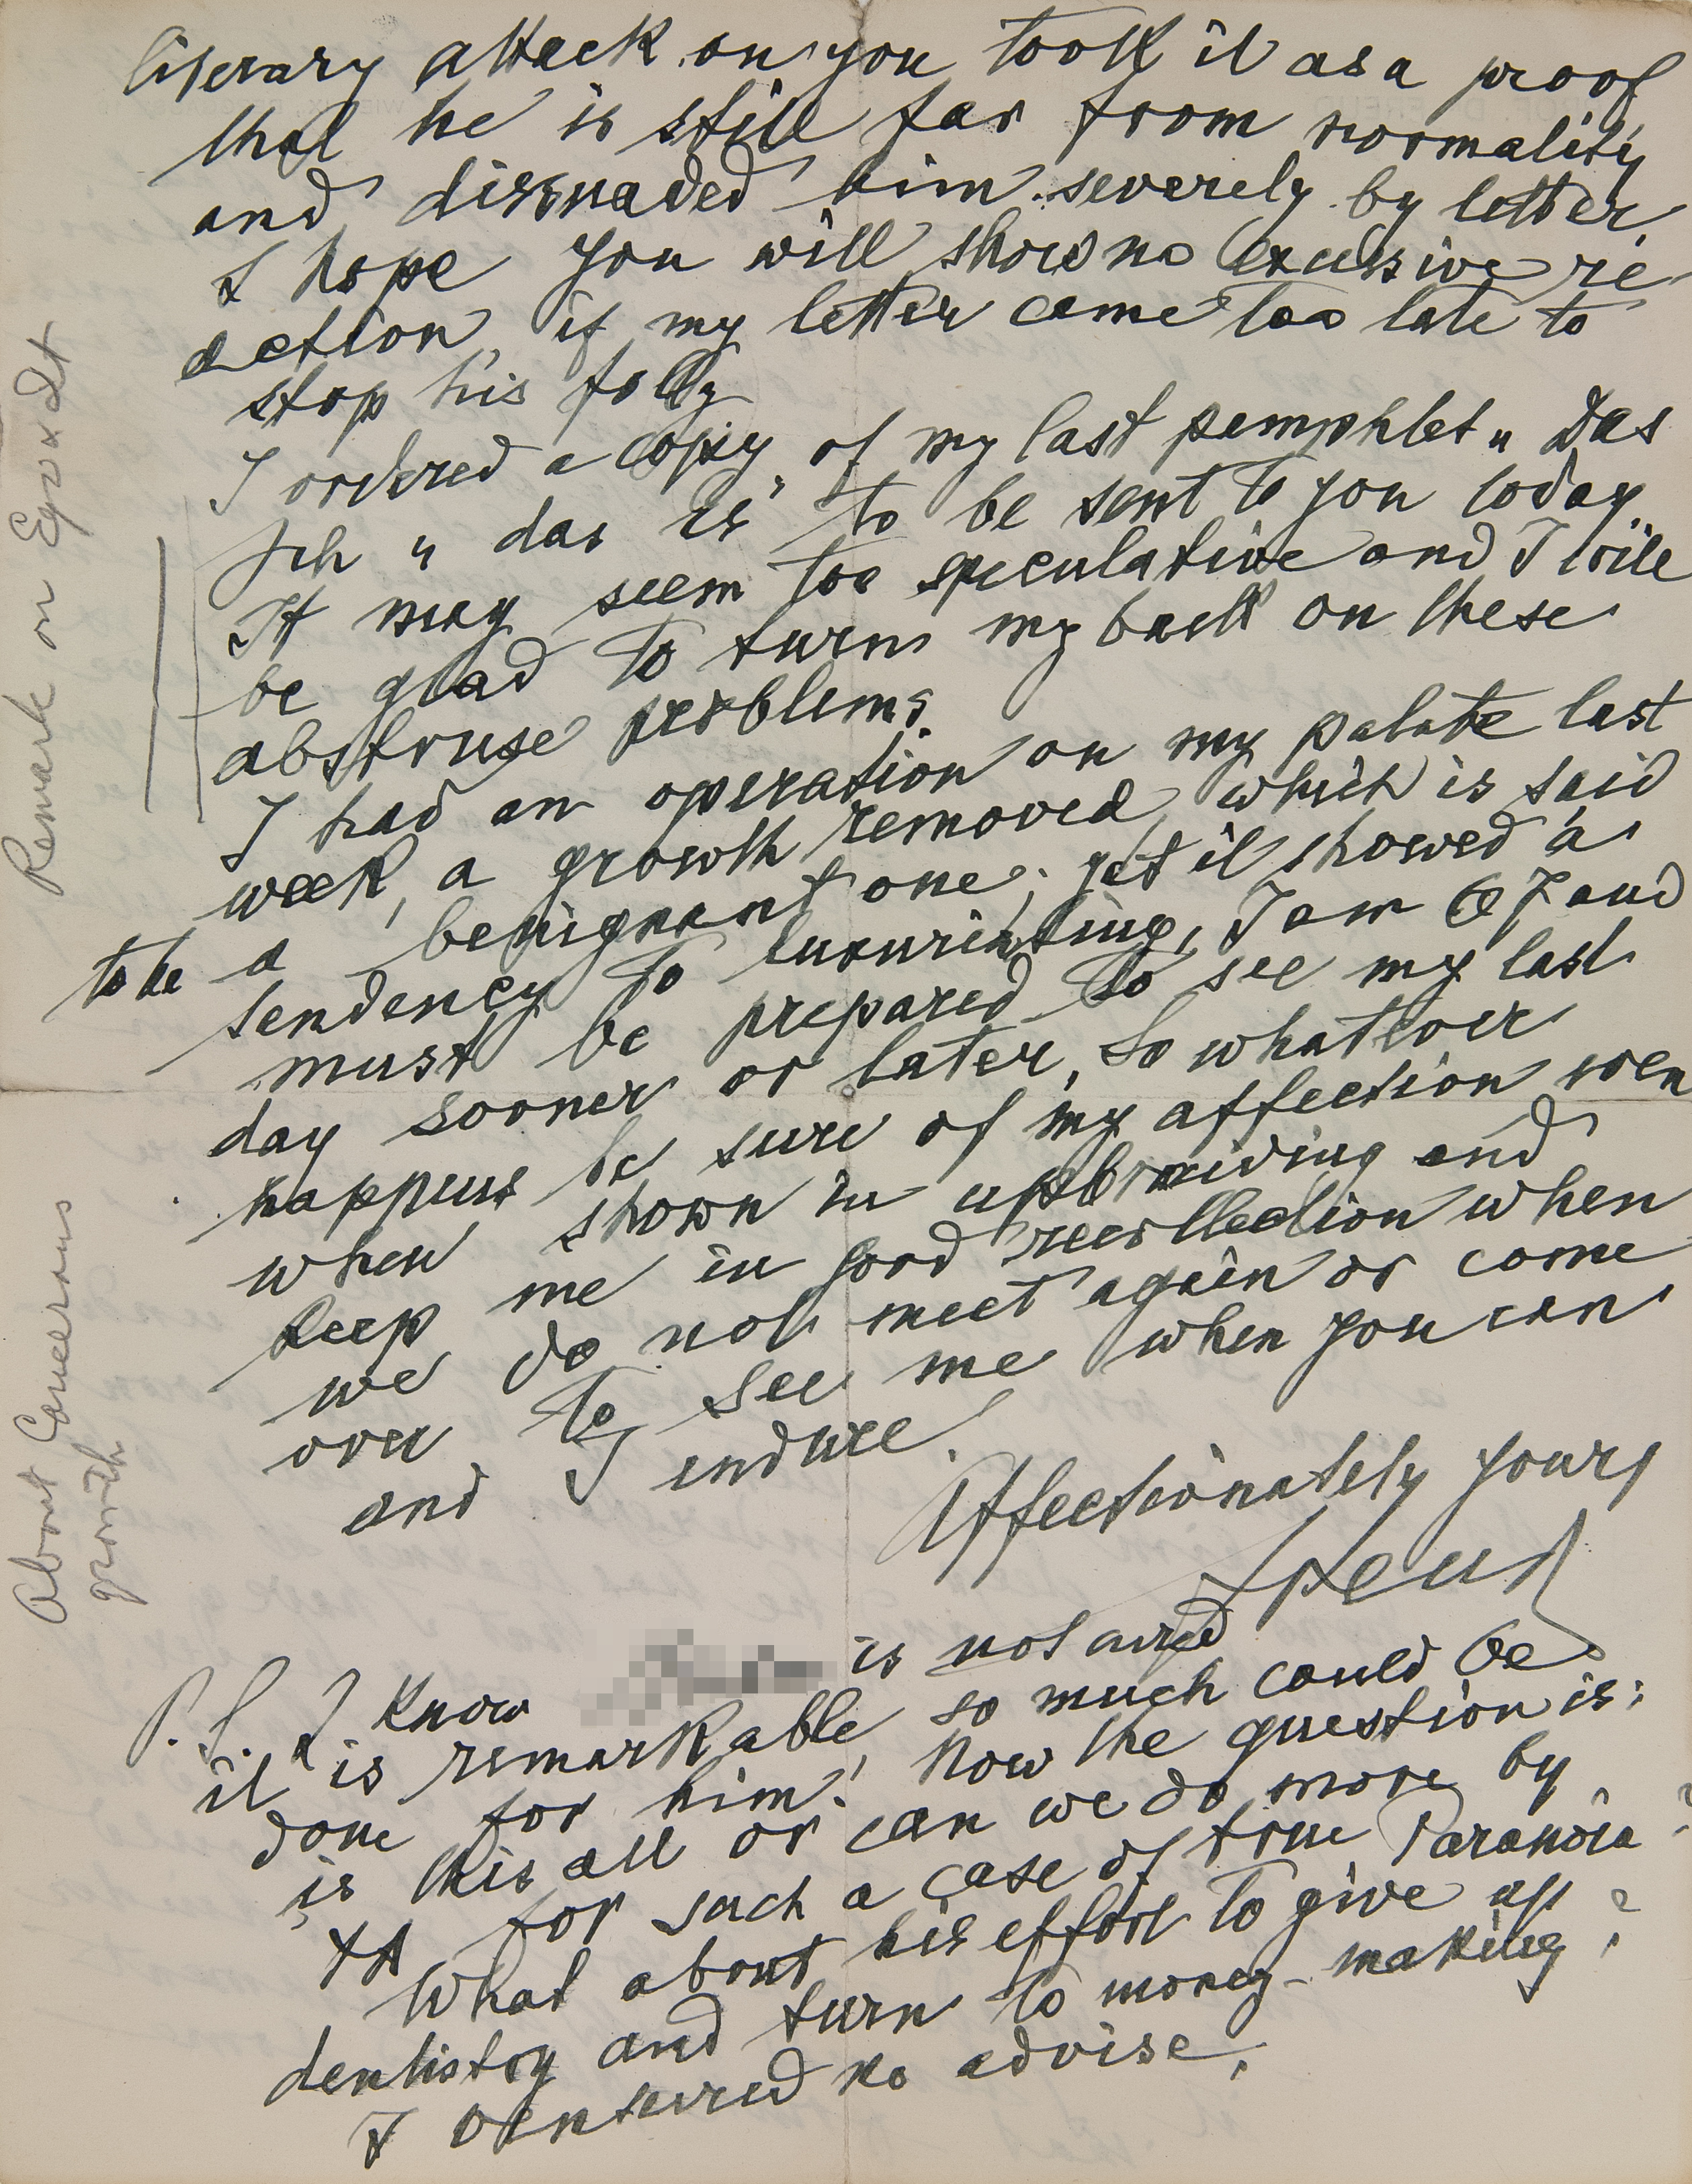 literary attack on you took it as a proof
that he is still far from normality
and dissuaded him severely by letter.
I hope you will show no excessive re-
action, if my letter came too late to
stop his folly
I ordered a copy of my last pamphlet „Das
Ich u das Es" to be sent to you today.
It may seem too speculative and I will
be glad to turn my back on these
abstruse problems.
I had an operation on my palate last
week, a growth removed which is said
to be a benignant one; yet it showed a
tendency to luxuriating, I am 67 and
must be prepared to see my last
day sooner or later, so whatever
happens be sure of my affection even
when shown in upbraiding and
keep me in good recollection when
we do not meet again or come
over to see me when you can
and I endure.
Affectionately yours
Freud
P.S. I know is not cured
it is remarkable, so much could be
done for him! Now the question is:
is this all or can we do more by
ΨA for such a case of true Paranoia?
What about his effort to give up
dentistry and turn to money-making?
I ventured no advise.
Remark on Ego & It
About Cancerous
growth